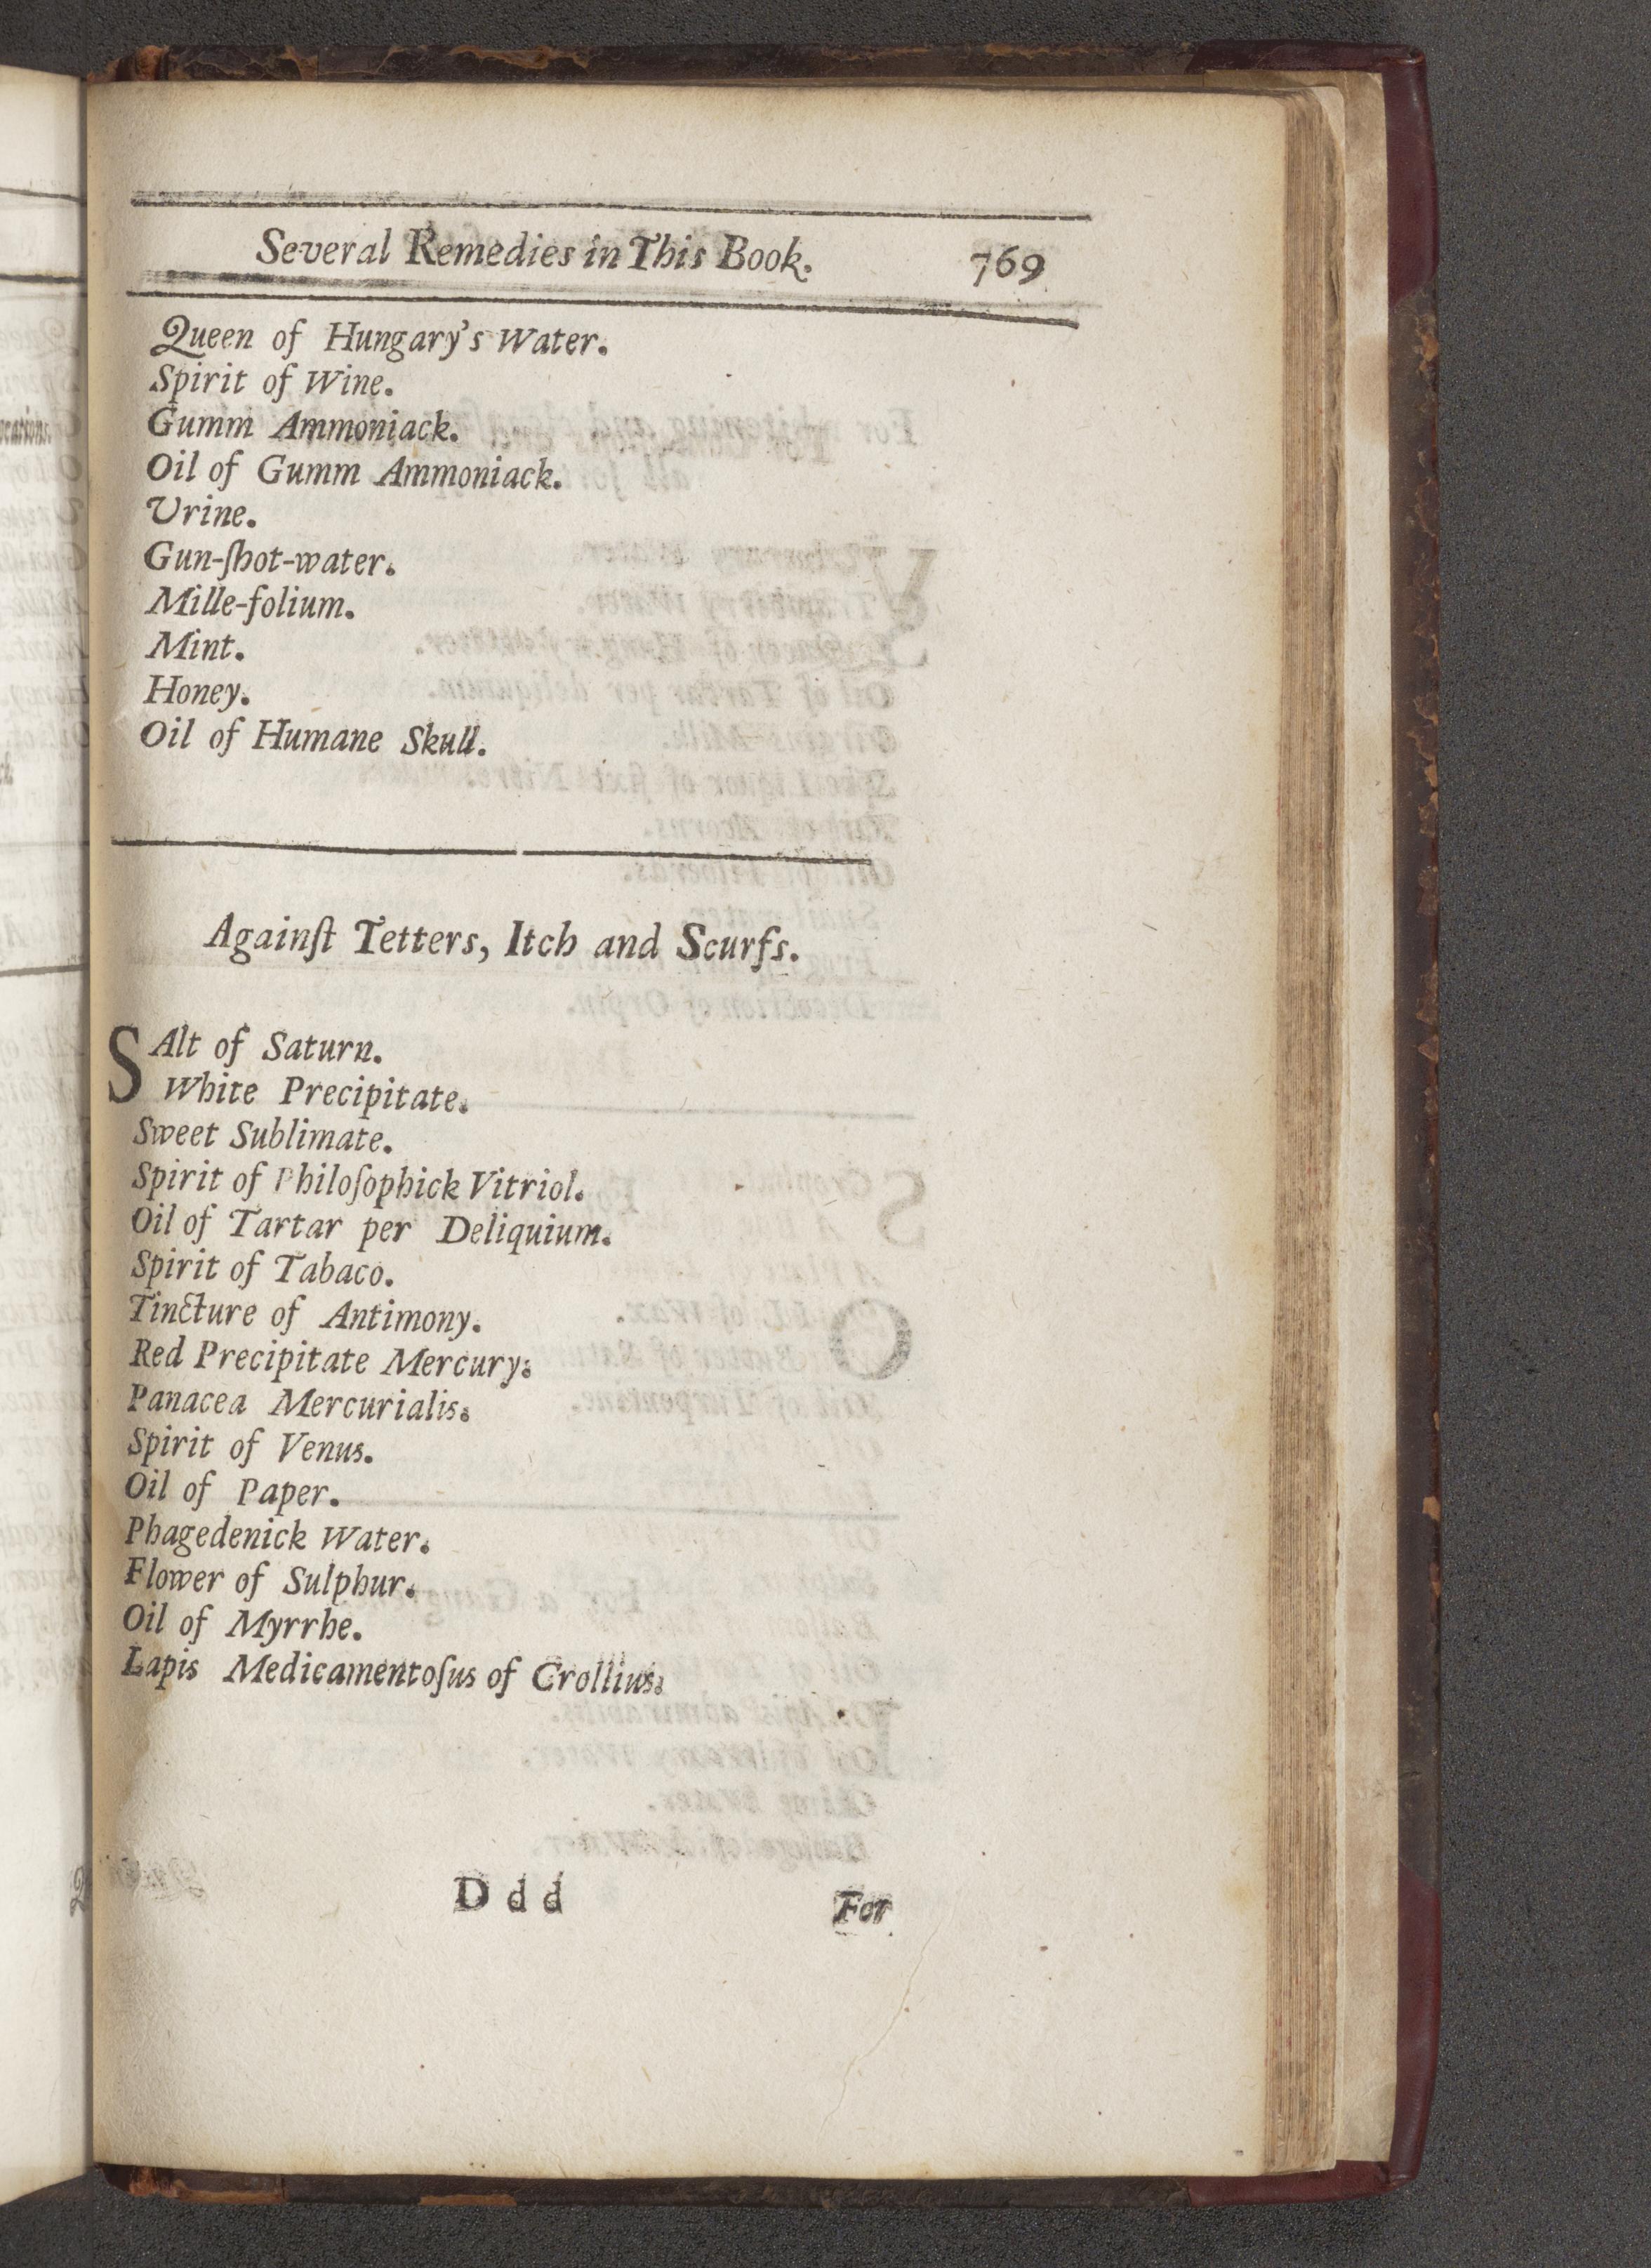 Several Remedies in This Book. 769
Queen of Hungary's Water.
Spirit of Wine.
Gumm Ammoniack.
Oil of Gumm Ammoniack.
Urine.
Gun-ſhot-water.
Mille-folium.
Mint.
Honey.
Oil of Humane Skull.
Againſt Tetters, Itch and Scurfs.
SAlt of Saturn.
White Precipitate.
Sweet Sublimate.
Spirit of Philoſophick Vitriol.
Oil of Tartar per Deliquium.
Spirit of Tabaco.
Tincture of Antimony.
Red Precipitate Mercury.
Panacea Mercurialis.
Spirit of Venus.
Oil of Paper.
Phagedenick Water.
Flower of Sulphur.
Oil of Myrrhe.
Lapis Medicamentoſus of Crollius.
D d d For